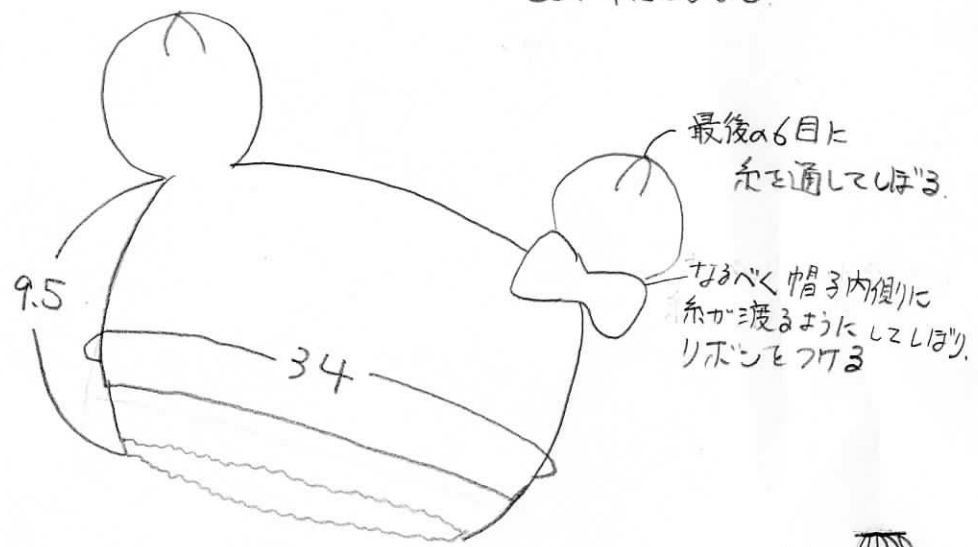 最後の6目に
糸を通してしぼる.
なるべく帽子内側に
糸が渡るようにしてしぼり.
リボンをつける
9.5
34